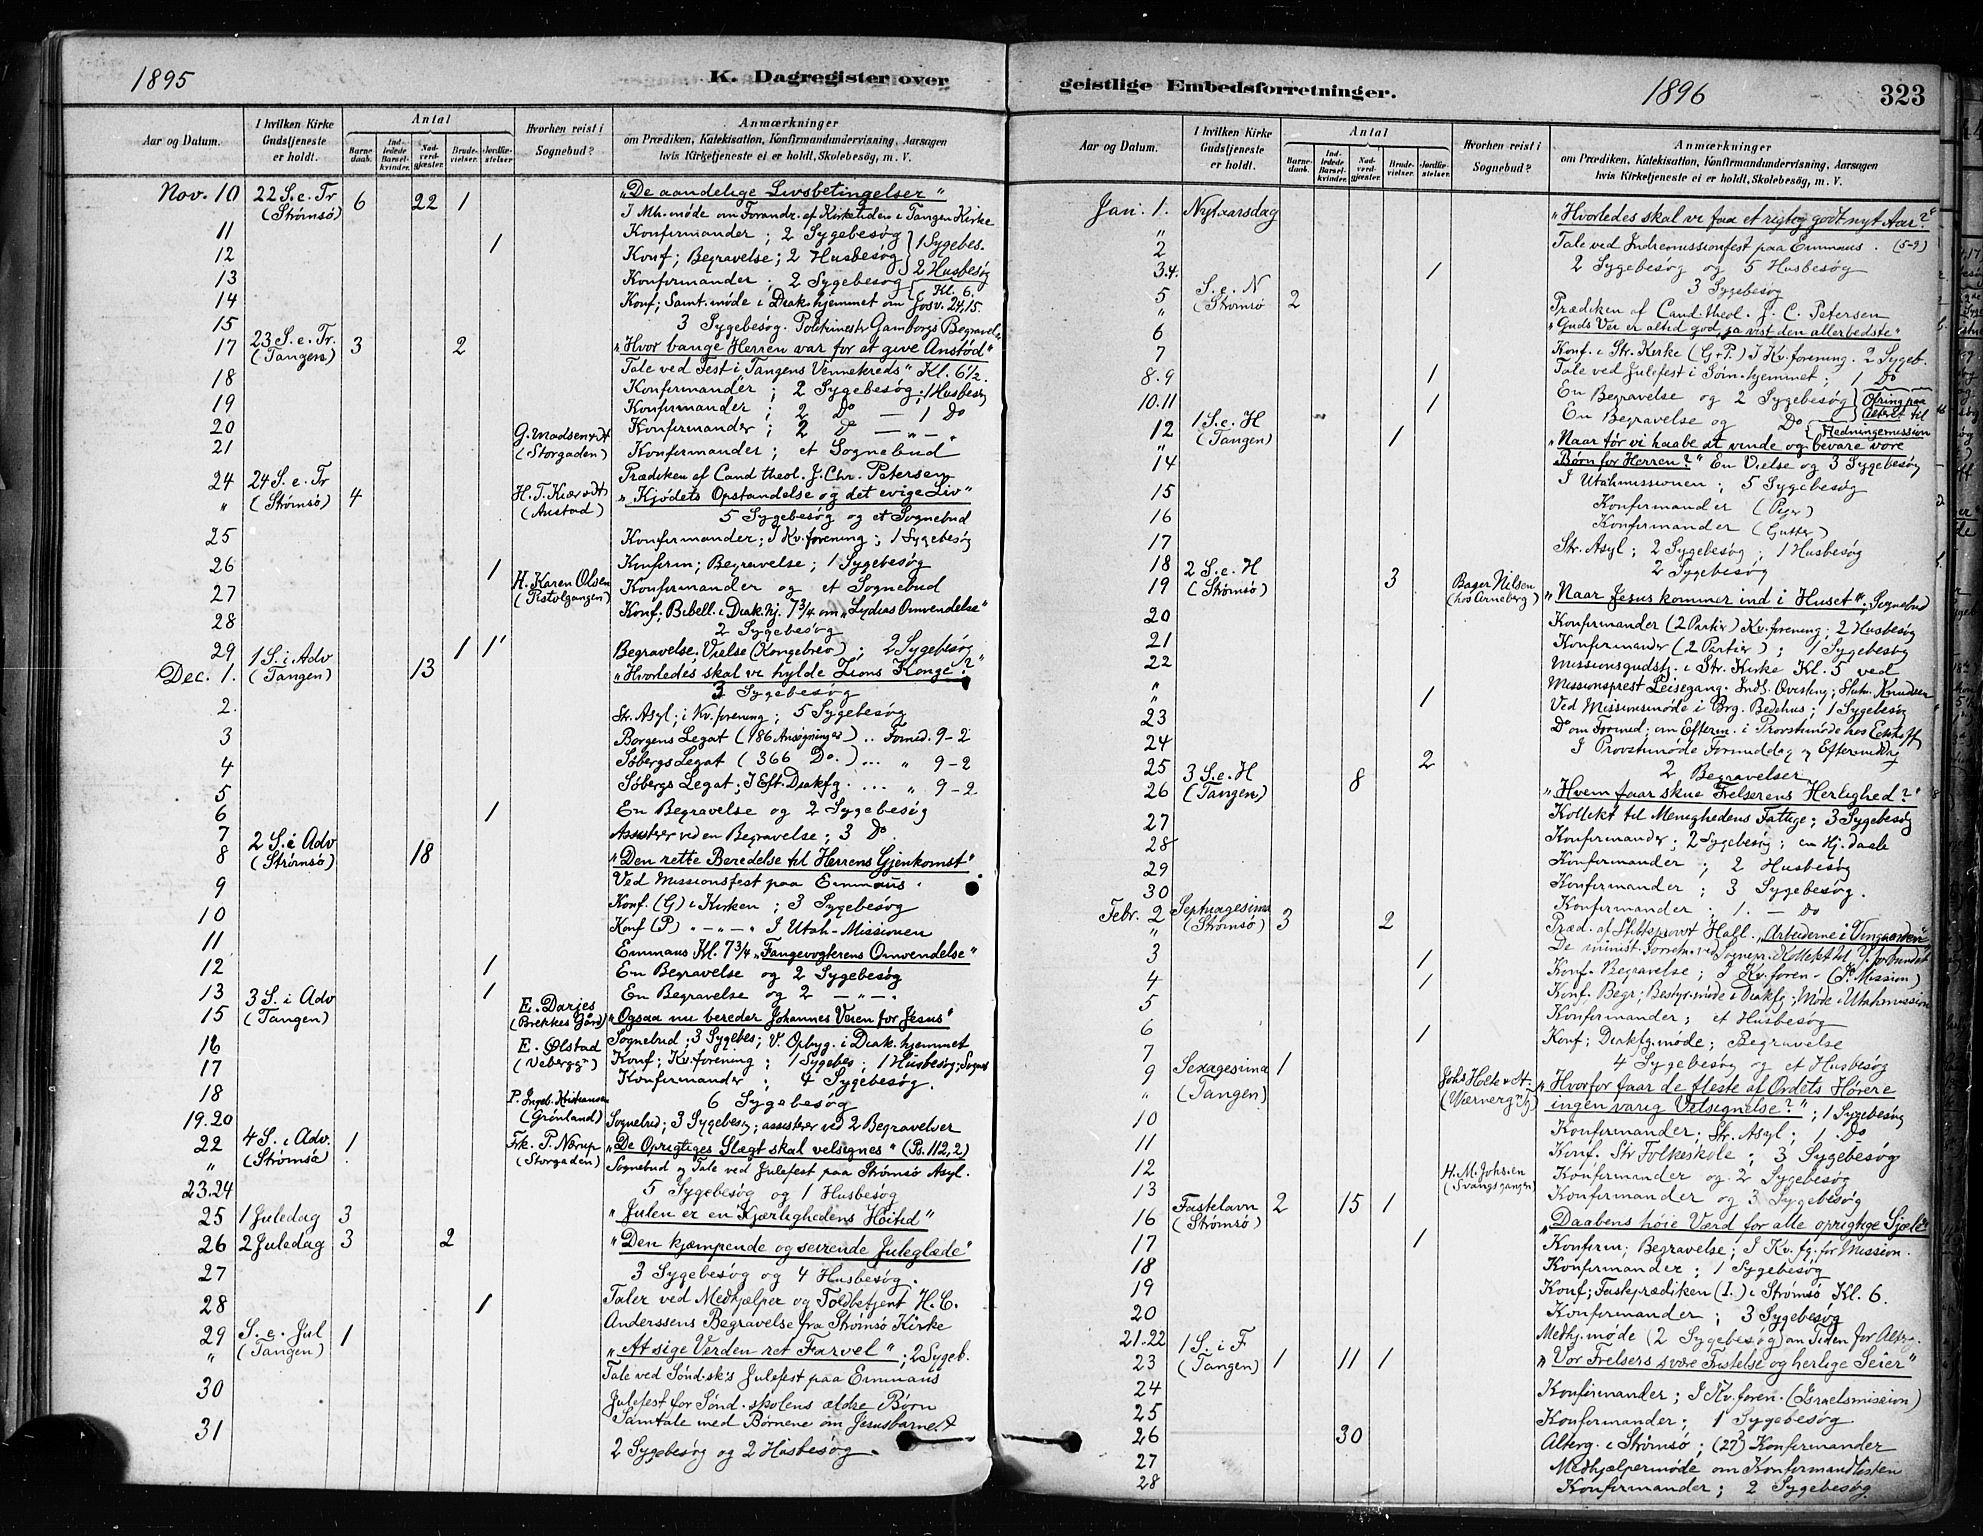 1895
K. Dagregister over
Aar og Datum.
I hvilken Kirke Gudstjeneste er holdt.
Antal
Barnedaab.
Indledede Barselkvinder.
Nadverdgjæster.
Brudevielser.
Jordfæstelser.
Hvorhen reist i Sognebud?
Anmærkninger
om Prædiken, Katekisation, Konfirmandundervisning, Aarsagen
hvis Kirketjeneste ei er holdt, Skolebesøg, m. V.
Nov. 10 22 S. e. Tr (Strømsö) 6 22 1 „De aandelige Livsbetingelser“
I Mh. møde om Forandr. af Kirketiden i Tangen Kirke
11 Konfirmander ; 2 Sygebesøg 1 Sygebes.
12 1 Konf ; Begravelse ; 2 Husbesøg
13 Konfirmander ; 2 Sygebesøg 2 Husbesøg
14 Konf ; Samt. møde i Diak hjemmet om Kl. 6. Josv. 24,15.
15 3 Sygebesøg. Politimester Gamborgs Begravels
17 23 S. e. Tr. (Tangen) 3 2 „Hvor bange Herren var for at give Anstød“
Tale ved Fest i Tangens Vennekreds“ Kl. 6 1/2.
18 Konfirmander ; 2 Sygebesøg ; 1 Husbesøg
19 Konfirmander ; 2 Do — 1 Do
20 Konfirmander ; 2 D — „ — „
21 G. Madsen (Storgaden) Konfirmander ; et Sognebud
24 24 S. e. Tr (Strømsö) 4 Prædiken af Cand theol. J. Chr. Petersen
„ H. T. Kiær (Austad) „Kjødets Opstandelse og det evige Liv“
5 Sygebesøg og et Sognebud
25 Konfirmander ; I Kv. forening ; 1 Sygebesøg
26 1 Konfirm ; Begravelse ; 1 Sygebesøg
27 H. Karen Olsen (Pistolgangen) Konfirmander og et Sognebud
28 Konf ; Bibell. i Diak. hj. 7 3/4 om „Lydias Omvendelse“
2 Sygebesøg
29 1 1 Begravelse. Vielse (Kongebrev) ; 2 Sygebesøg
Dec. 1. 1 S. i. Adv (Tangen) 13 „Hvorledes skal vi hylde Zions Konge?“
3 Sygebesøg
2. Str. Asyl ; i Kv. forening ; 5 Sygebesøg
3 Borgens Legat (186 Ansøgninger) .. Formd. 9-2
4 Søbergs Legat (366 Do.) ... „ 9-2
5 Søbergs Legat ; I Eft. Diakfg. .... „ 9-2
6 1 En Begravelse og 2 Sygebesøg
7 Assisterer ved en Begravelse ; 3 Do.
8 2 S. i Adv (Strømsö) 18 „Den rette Beredelse til Herrens Gjenkomst“
9 Ved Missionsfest paa Emmaus.
Konf. (G) i Kirken ; 3 Sygebesøg
10 Konf (P) „ — „ — „ I Utah-Missionen
11 Emmaus Kl. 7 3/4 „Fangevogterens Omvendelse“
12 1 En Begravelse og 2 Sygebesøg
13 1 En Begravelse og 2 — „ — .
15 3 S. i Adv (Tangen) E. Darjes (Brekkes Gård) „Ogsaa nu bereder Johannes Veien for Jesus“
16 E. Ølstad Sognebud ; 3 Sygebes ; V. Opbyg. i Diak. hjemmet
17 Konf ; Kv. forening ; 1 Sygebes ; 1 Husbesøg ; Sogneb
Konfirmander ; 4 Sygebesøg.
18 6 Sygebesøg
19.20 P. Ingeb. Kristiansen (Grønland) Sognebud ; 3 Sygebesøg ; assisterer ved 2 Begravelser
22 4 S. i Adv. (Strømsö) 1 Frk. P. Nørup (Storgaden) „De Oprigtiges Slægt skal velsignes“ (Ps. 112,2)
„ Sognebud og Tale ved Julefest paa Strømsö Asyl.
23.24 5 Sygebesøg og 1 Husbesøg
25 1 Juledag 3 „Julen er en Kjærlighedens Høitid“
26 2 Juledag 3 2 „Den kjæmpende og seirende Juleglæde“
27 3 Sygebesøg og 4 Husbesøg.
28 1 Taler ved Medhjælper og Toldbetjent H. C.
Anderssens Begravelse fra Strømsö Kirke
29 S. e. Jul (Tangen) 1 „At sige Verden ret Farvel“ ; 2 Sygeb.
„ Tale ved Sönd.sk's Julefest paa Emmaus
30 Julefest for Sönd. skolens ældre Børn
Samtale med Børnene om Jesusbarnet
31 2 Sygebesøg og 2 Husbesøg.
geistlige Embedsforretninger.
1896
323
Aar og Datum.
I hvilken Kirke Gudstjeneste er holdt.
Antal
Barnedaab.
Indledede Barselkvinder.
Nadverdgjæster.
Brudevielser.
Jordfæstelser.
Hvorhen reist i Sognebud?
Anmærkninger
om Prædiken, Katekisation, Konfirmandundervisning, Aarsagen
hvis Kirketjeneste ei er holdt, Skolebesøg, m. V.
Jan. 1. Nytaarsdag „Hvorledes skal vi faa et rigtig godt nyt Aar?“
„ Tale ved Indremissionfest paa Emmaus. (5-9)
2 2 Sygebesøg og 5 Husbesøg
3.4. 1 3 Sygebesøg
5 S. e. N (Strømsö 2 Prædiken af Cand. theol. J. C. Petersen
„ „Guds Vei er altid god, ja vist den allerbedste“
6 Konf. i Str. Kirke (G+P.) I Kv. forening. 2 Sygeb.
7 Tale ved Julefest i Søm. hjemmet ; 1 Do
8.9 1 En Begravelse og 2 Sygebesøg Ofring paa
10.11 1 En Begravelse og Do Alteret til Hedningemission
12 1 S. e. H (Tangen) 1 „Naar tør vi haabe at vinde og bevare vore
„ Børn for Herren?“ En Vielse og 3 Sygebesøg
14 I Utahmissionen ; 5 Sygebesøg
15 Konfirmander (Piger)
16 Konfirmander (Gutter)
17 Str. Asyl ; 2 Sygebesøg ; 1 Husbesøg
18 2 Sygebesøg
19 2 S. e. H (Strømsö) 3 Bager Nilsen (hos Arneberg) „Naar Jesus kommer ind i Huset“. Sognebud
20 Konfirmander (2 Partier) Kv. forening ; 2 Husbesøg
21 Konfirmander (2 Partier) ; 1 Sygebesøg
22 Missionsgudstj. i Str. Kirke Kl. 5 ved
„ Missionsprest Leisegang. Indl. Qvisling ; Slutn. Knudsen
„ 1 Ved Missionsmøde i Brg. Bedehus ; 1 Sygebesøg
23 Do om Formid ; om Efterm. i Provstimøde hos Eckhoff
24 I Provstimøde Formiddag og Eftermiddag
25 2 2 Begravelser
26 3 S. e. H (Tangen) 8 „Hvem faar skue Frelserens Herlighed?“
27 Kollekt til Menighedens Fattige ; 3 Sygebesøg
28 Konfirmander ; 2 Sygebesøg ; en Hj. daab
29 Konfirmander ; 2 Husbesøg
30 Konfirmander ; 3 Sygebesøg.
Konfirmander . 1. — Do
Febr. 2 Septuagesima (Strømsö) 3 2 Præd. af Stiftsprovst Hall. „Arbeiderne i Vingaarden“
3 1 Konf. Begravelse ; I Kv. foren - (Mission)
4 1 Konf. Begr ; Bestyr. møde i Diakfg ; Møde i Utahmission
5 Konfirmander ; et Husbesøg
6 1 Konf ; Diakfg. møde ; Begravelse
7 4 Sygebesøg og et Husbesøg
9 Sexagesima (Tangen) 1 Johs Holte (Værnersg.) „Hvorfor faar de fleste af Ordets Hørere
„ ingen varig Velsignelse?“ ; 1 Sygebesøg
10 Konfirmander ; Str. Asyl ; 1 Do
11 Konf. Str Folkeskole ; 3 Sygebesøg
12 H. M. Johsen (Svangsgangen) Konfirmander og 2 Sygebesøg
13 Konfirmander og 3 Sygebesøg
16 Fastelavn (Strømsö) 2 15 1 „Daabens høie Værd for alle oprigtige Sjæle“
17 1 Konfirm ; Begravelse ; I Kv. fg. for Mission.
18 Konfirmander ; 1 Sygebesøg
19 Konf ; Fasteprædiken (I.) i Strømsö Kl. 6.
20 Konfirmander ; 3 Sygebesøg
21.22 Medhj. møde (2 Sygebesøg) om Tiden for Altg.
23 1 S. i F (Tangen) 1 11 1 „Vor Frelsers svære Fristelse og herlige Seier“
24 Konfirmander ; I Kv. foren. (Israelsmission)
25 Konfirmander ; 1 Sygebesøg
26 30 Alterg. i Strømsö ; (27) Konfirmander
27 Medhjælpermøde om Konfirmandlisten
28 Konfirmander ; 2 Sygebesøg.